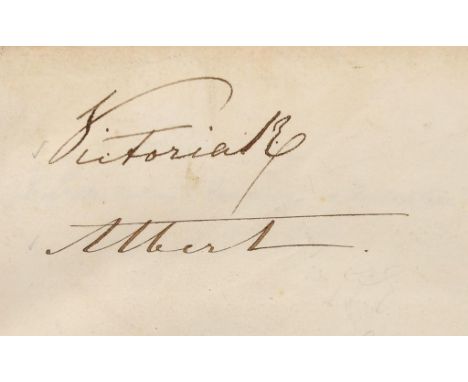 Victoria R.
Albert.